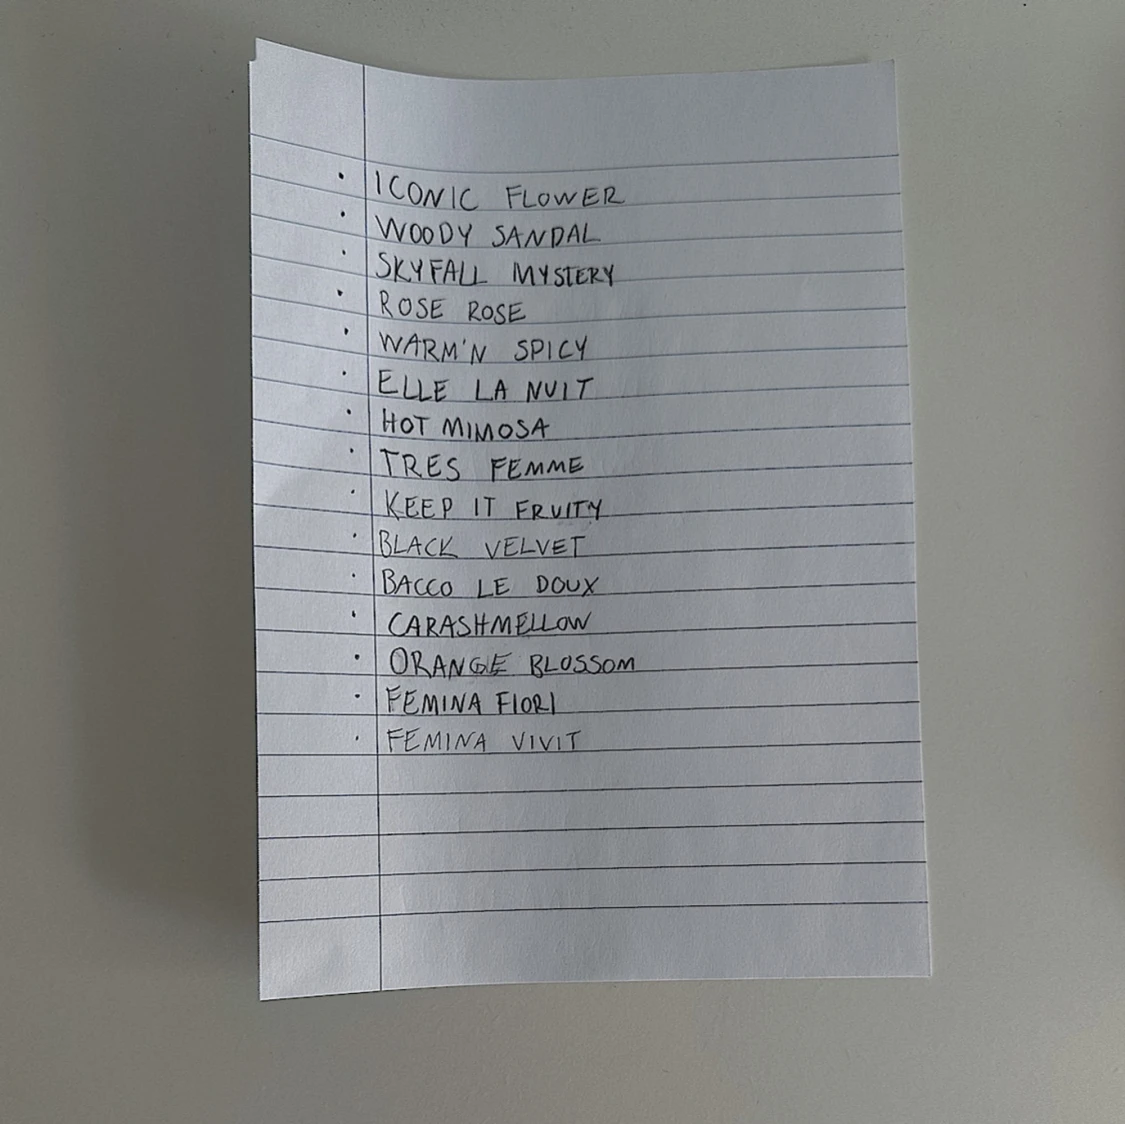 · ICONIC FLOWER
· WOODY SANDAL
· SKYFALL MYSTERY
· ROSE ROSE
· WARM'N SPICY
· ELLE LA NUIT
· HOT MIMOSA
· TRES FEMME
· KEEP IT FRUITY
· BLACK VELVET
· BACCO LE DOUX
· CARASHMELLOW
· ORANGE BLOSSOM
· FEMINA FIORI
· FEMINA VIVIT